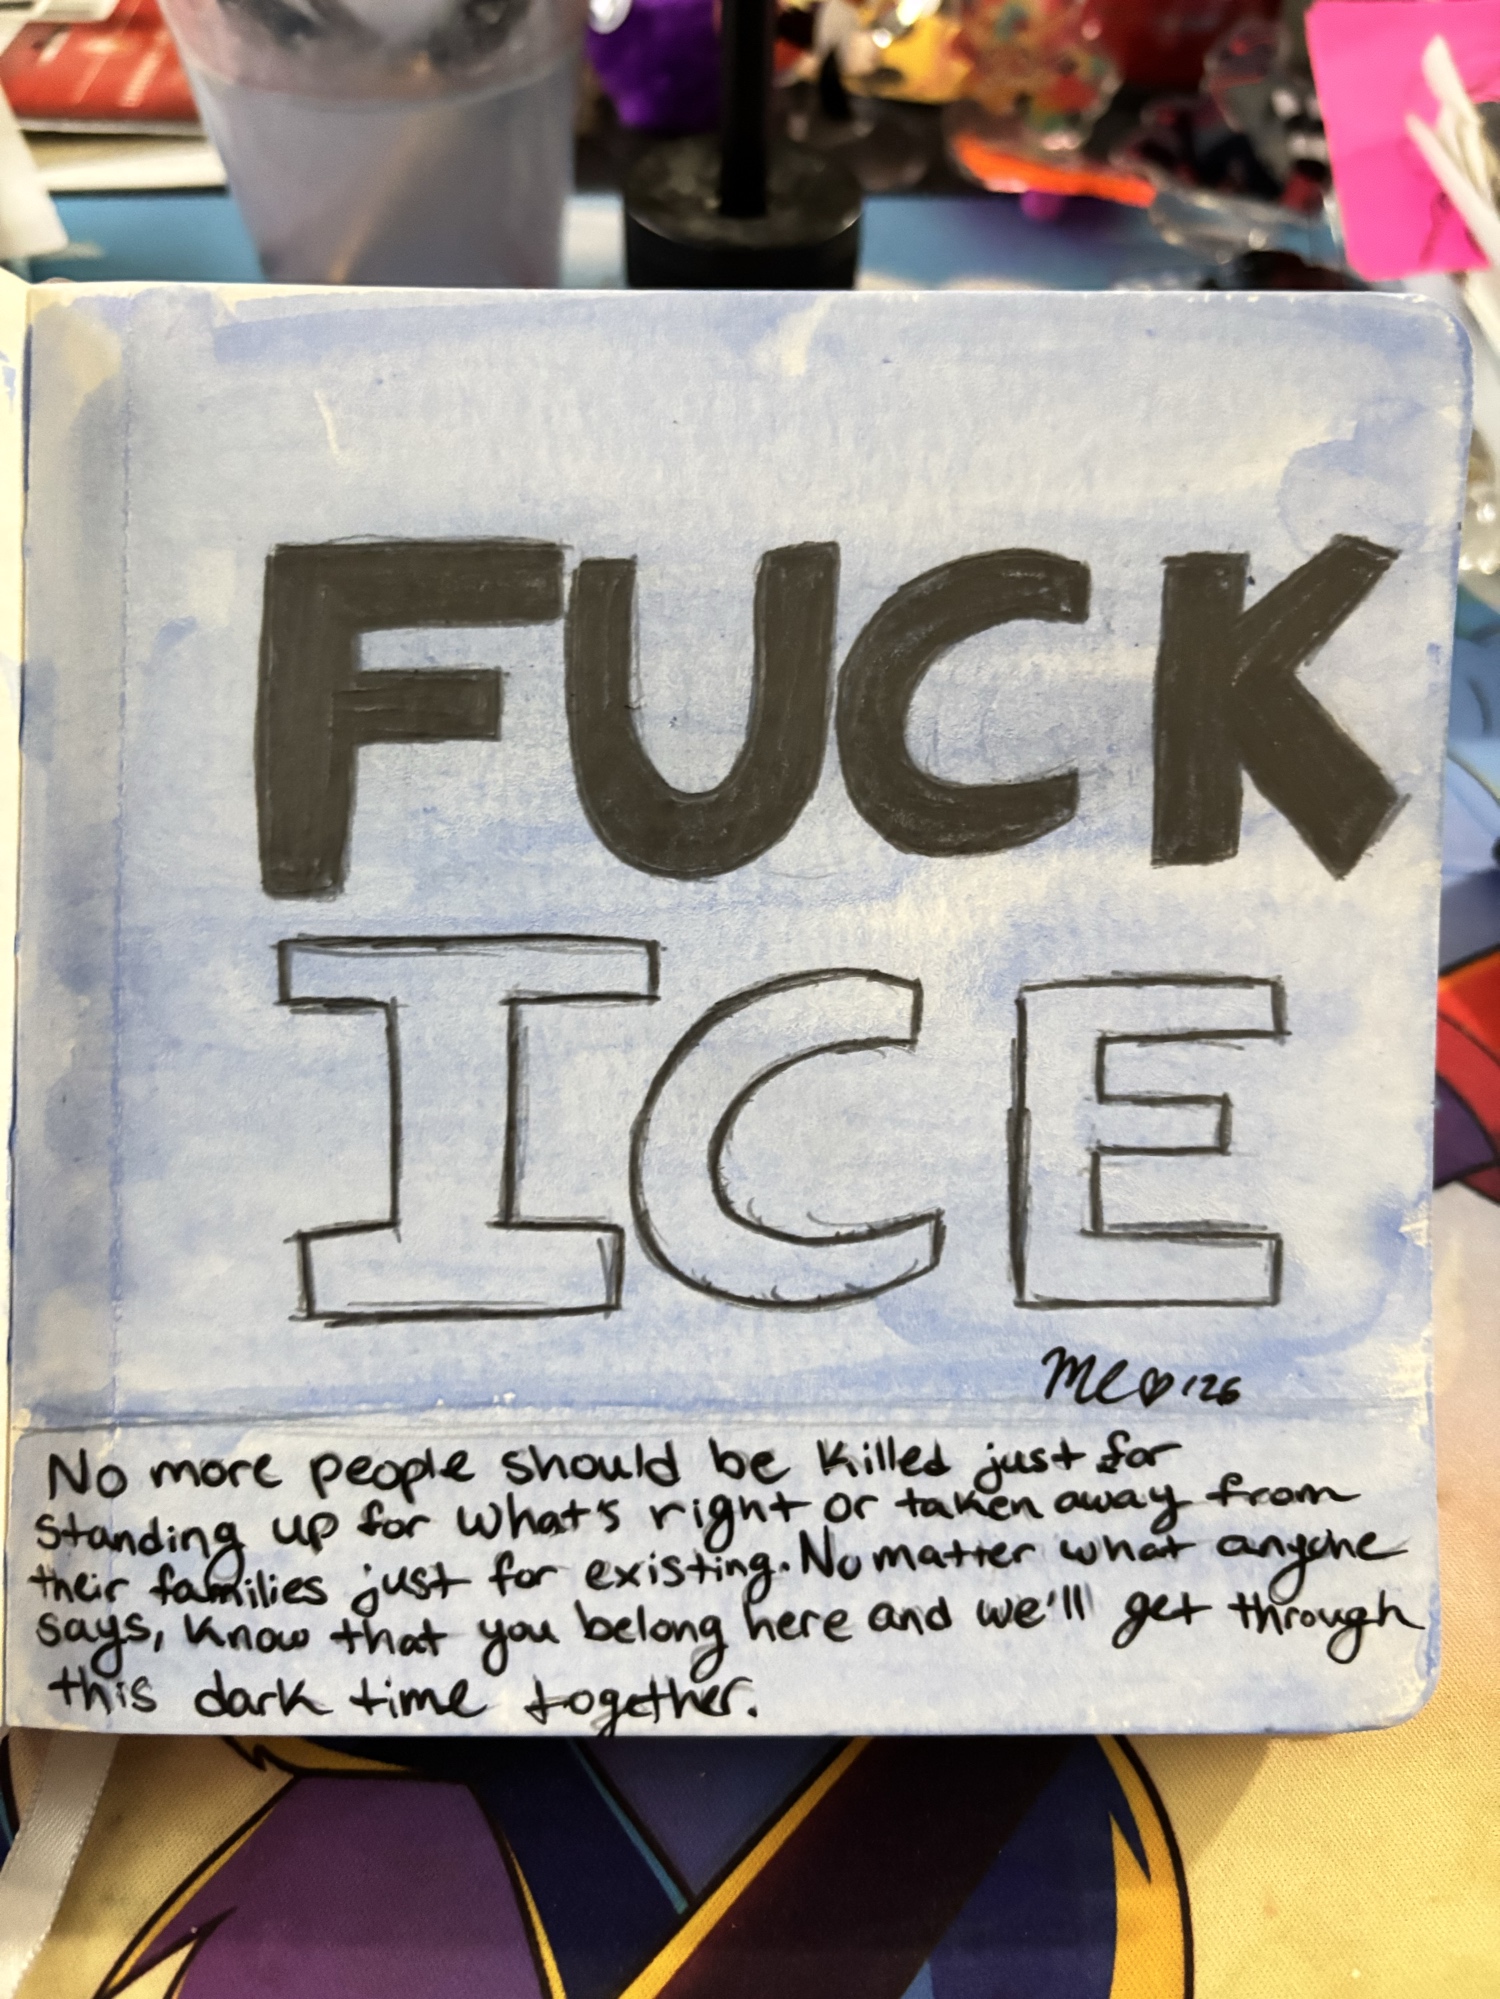 FUCK
ICE
MC♡'26
No more people should be killed just for
standing up for what's right or taken away from
their families just for existing. No matter what anyone
says, know that you belong here and we'll get through
this dark time together.